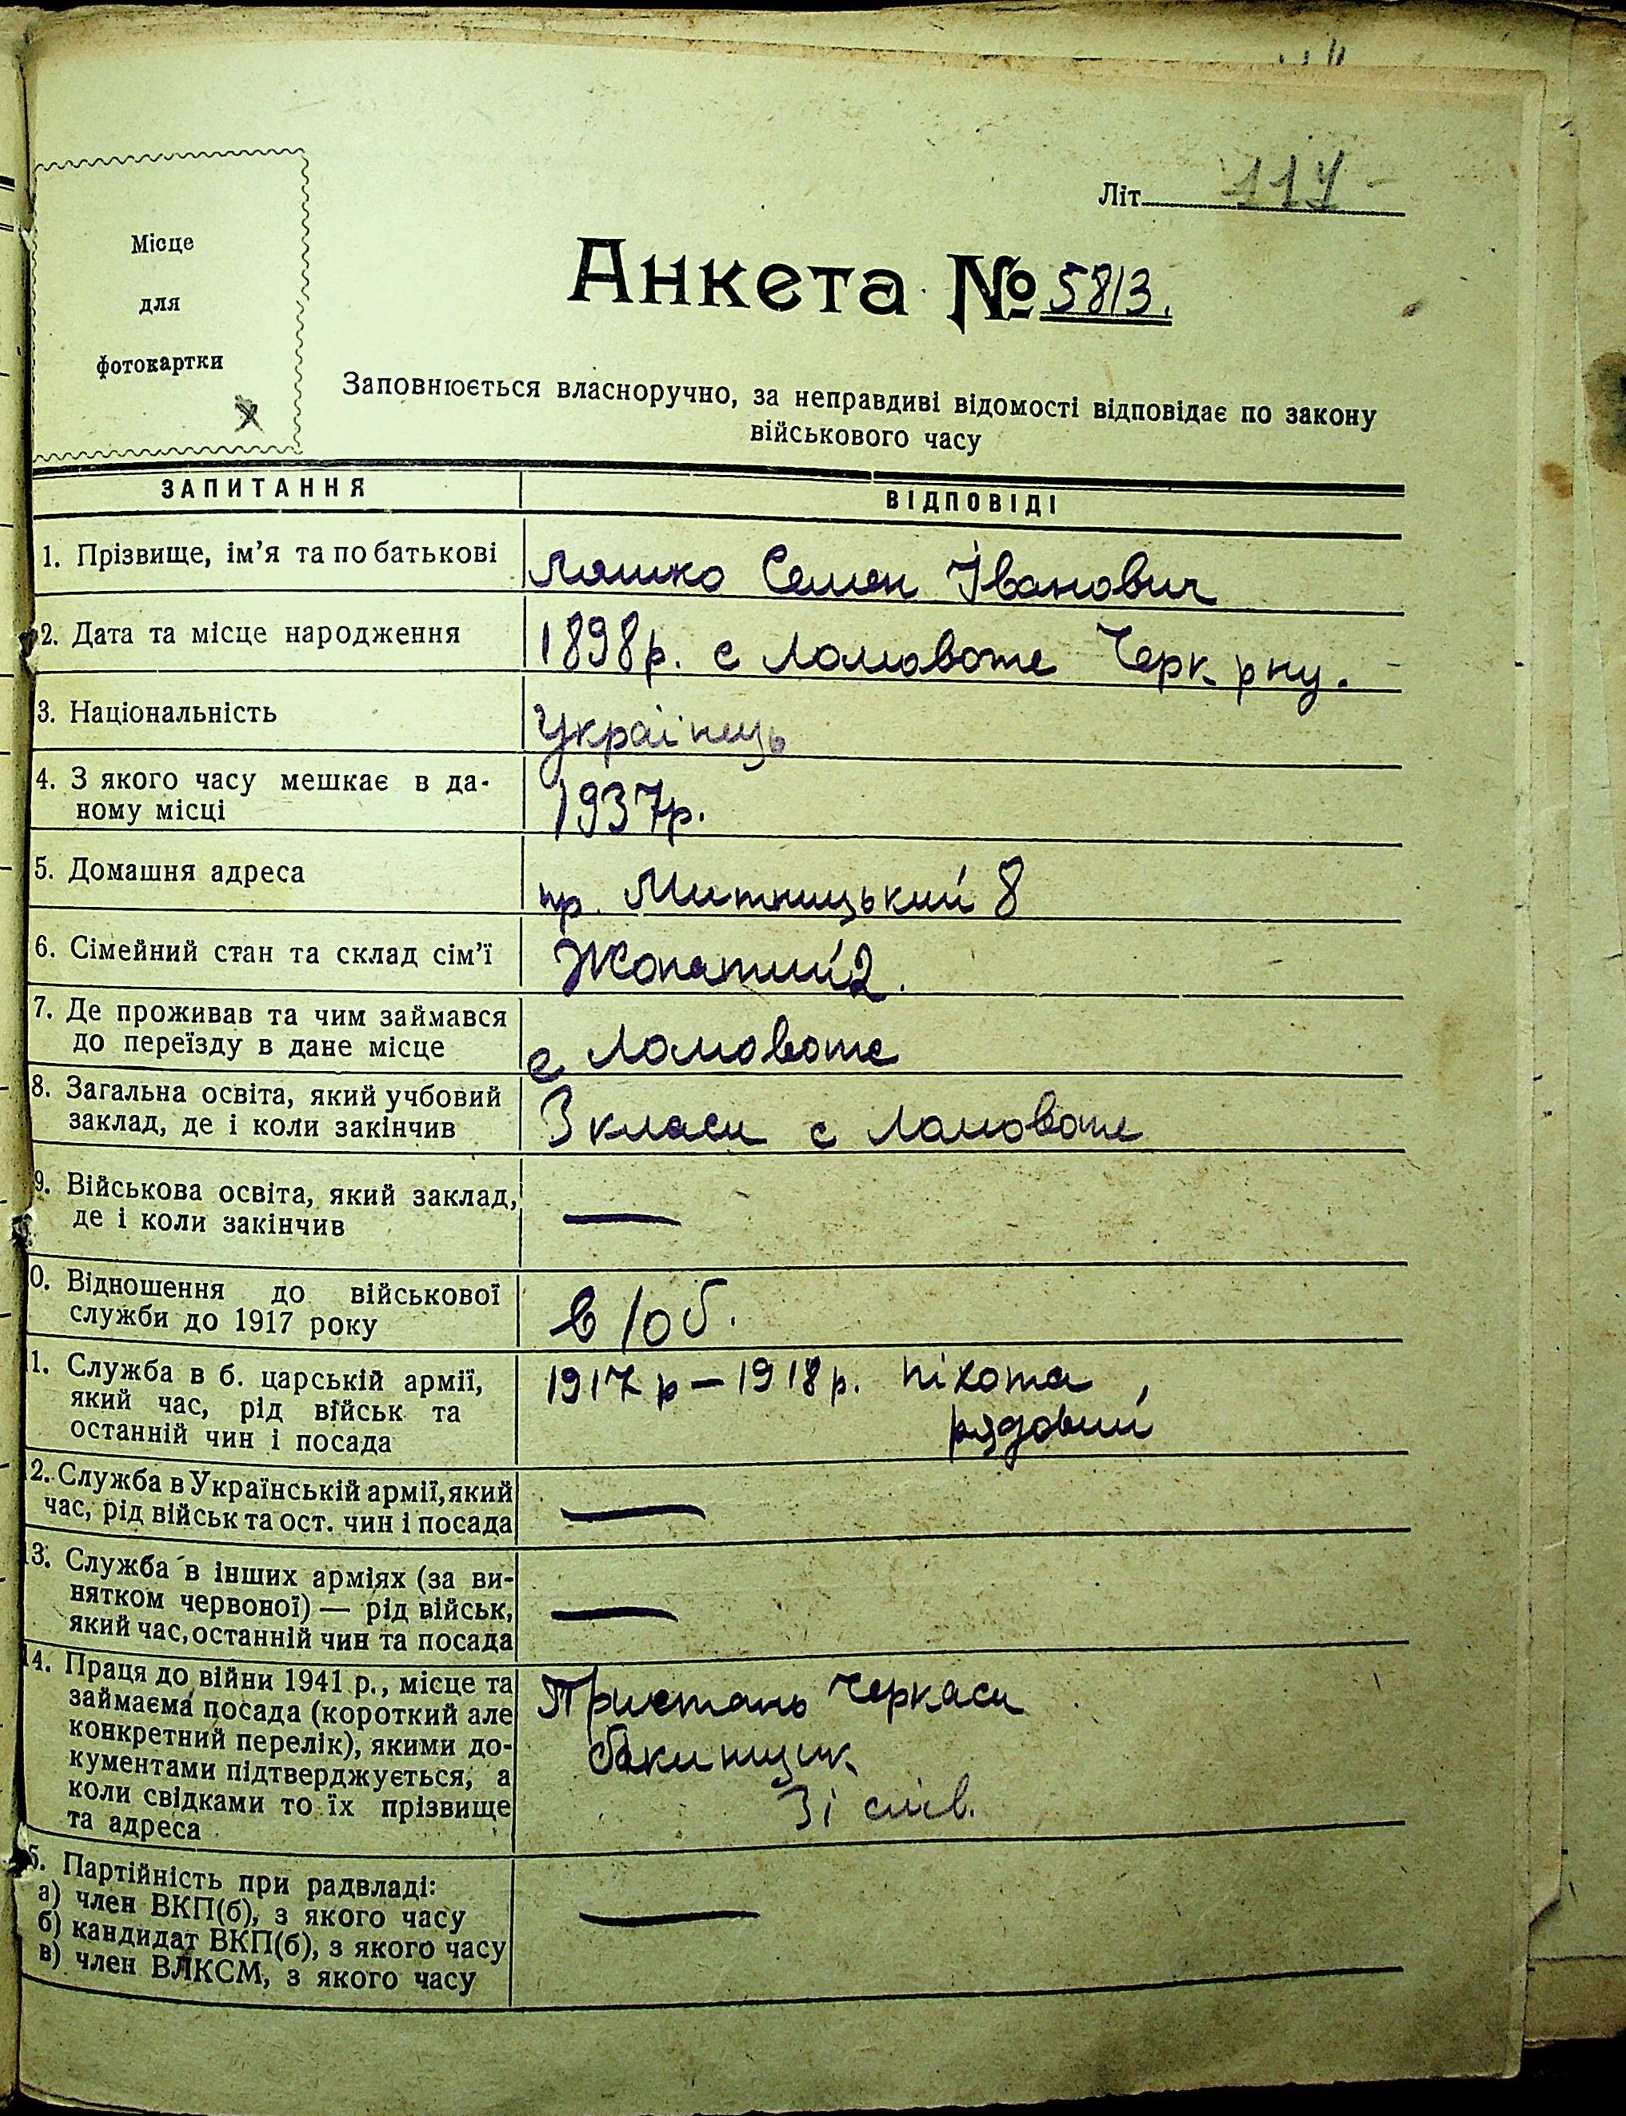 Літ. 117 -
Місце
для
фотокартки
Анкета № 5813.
Заповнюється власноручно, за неправдиві відомості відповідає по закону
військового часу
ЗАПИТАННЯ
ВІДПОВІДІ
1. Прізвище, ім'я та по батькові
Ляшко Семен Іванович
2. Дата та місце народження
1898р. с Ломовате Черк. рну.
3. Національність
Українець
4. З якого часу мешкає в да-
ному місці
1937р.
5. Домашня адреса
пр. Митницький 8
6. Сімейний стан та склад сім'ї
Жонатий 2.
7. Де проживав та чим займався
до переїзду в дане місце
с Ломовате
8. Загальна освіта, який учбовий
заклад, де і коли закінчив
3 класи с Ломовате
9. Військова освіта, який заклад,
де і коли закінчив
—
0. Відношення до військової
служби до 1917 року
1. Служба в б. царській армії,
який час, рід військ та
останній чин і посада
1917 р — 1918 р. піхота,
рядовий
2. Служба в Українській армії, який
час, рід військ та ост. чин і посада
—
3. Служба в інших арміях (за ви-
нятком червоної) — рід військ,
який час, останній чин та посада
—
14. Праця до війни 1941 р., місце та
займаєма посада (короткий але
конкретний перелік), якими до-
кументами підтверджується, а
коли свідками то їх прізвище
та адреса
Пристань Черкаси
бакинщик
Зі слів.
5. Партійність при радвладі:
а) член ВКП(б), з якого часу
б) кандидат ВКП(б), з якого часу
в) член ВЛКСМ, з якого часу
—